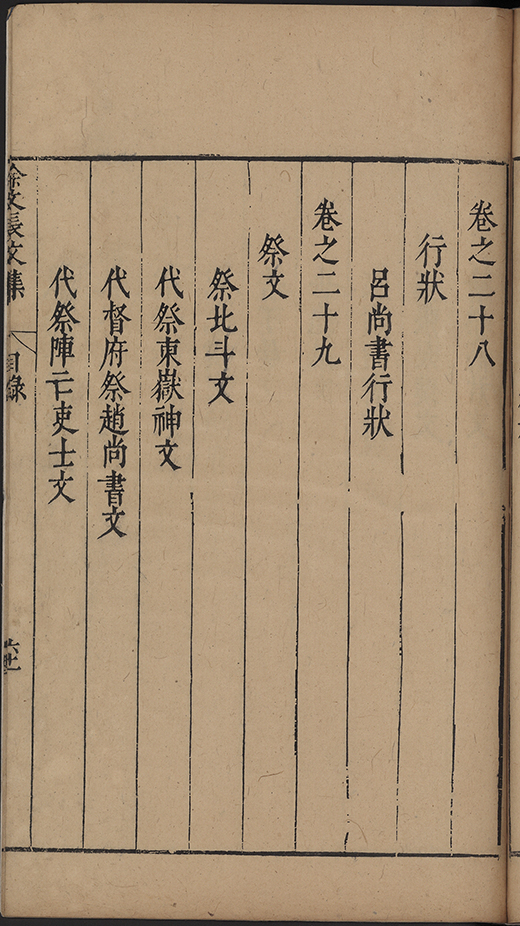 卷之二十八
行狀
呂尚書行狀
卷之二十九
祭文
祭北斗文
代祭東嶽神文
代督府祭趙尚書文
代祭陣亡吏士文
徐文長文集
目錄